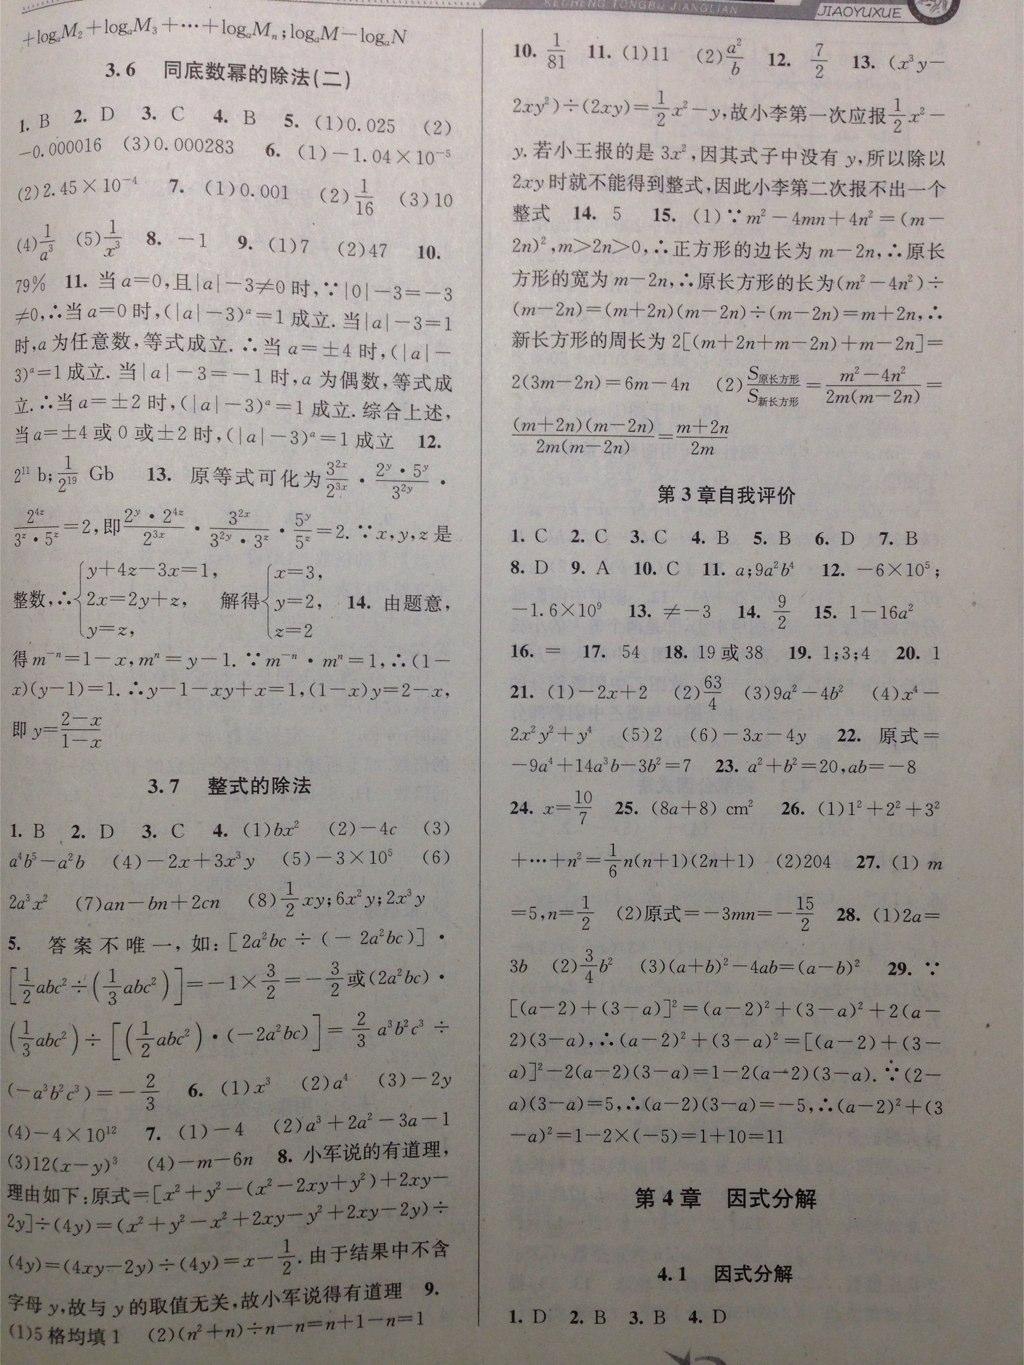 KECHENG TONGBU JIANGLIAN
JIAOYUXUE
+logₐM₂+logₐM₃+…+logₐMₙ;logₐM-logₐN
3.6 同底数幂的除法(二)
1. B 2. D 3. C 4. B 5. (1)0.025 (2)
-0.000016 (3)0.000283 6. (1)-1.04×10⁻⁵
(2)2.45×10⁻⁴ 7. (1)0.001 (2)1/16 (3)10
(4)1/a³ (5)1/x³ 8. -1 9. (1)7 (2)47 10.
79% 11. 当a=0,且|a|-3≠0时,∵|0|-3=-3
≠0,∴当a=0时,(|a|-3)ᵃ=1成立.当|a|-3=1
时,a为任意数,等式成立.∴当a=±4时,(|a|-
3)ᵃ=1成立.当|a|-3=-1时,a为偶数,等式成
立.∴当a=±2时,(|a|-3)ᵃ=1成立.综合上述,
当a=±4或0或±2时,(|a|-3)ᵃ=1成立 12.
2¹¹ b;1/2¹⁹ Gb 13. 原等式可化为3²ˣ/2³ˣ·(2ʸ·5ʸ)/3²ʸ·
2⁴ᶻ/(3ᶻ·5ᶻ)=2,即(2ʸ·2⁴ᶻ)/2³ˣ·3²ˣ/(3²ʸ·3ᶻ)·5ʸ/5ᶻ=2.∵x,y,z是
整数,∴{y+4z-3x=1, 2x=2y+z, y=z, 解得{x=3, y=2, z=2 14. 由题意,
得m⁻ⁿ=1-x,mⁿ=y-1.∵m⁻ⁿ·mⁿ=1,∴(1-
x)(y-1)=1.∴y-1-xy+x=1,(1-x)y=2-x,
即y=(2-x)/(1-x)
3.7 整式的除法
1. B 2. D 3. C 4. (1)bx² (2)-4c (3)
a⁴b⁵-a²b (4)-2x+3x³y (5)-3×10⁵ (6)
2a³x² (7)an-bn+2cn (8)1/2xy;6x²y;2x³y
5. 答案不唯一,如:[2a²bc÷(-2a²bc)]·
[1/2abc²÷(1/3abc²)]=-1×3/2=-3/2或(2a²bc)·
(1/3abc²)÷[(1/2abc²)·(-2a²bc)]=2/3a³b²c³÷
(-a³b²c³)=-2/3 6. (1)x³ (2)a⁴ (3)-2y
(4)-4×10¹² 7. (1)-4 (2)a³+2a²-3a-1
(3)12(x-y)³ (4)-m-6n 8. 小军说的有道理,
理由如下:原式=[x²+y²-(x²-2xy+y²)+2xy-
2y]÷(4y)=(x²+y²-x²+2xy-y²+2xy-2y)÷
(4y)=(4xy-2y)÷(4y)=x-1/2.由于结果中不含
字母y,故与y的取值无关,故小军说得有道理 9.
(1)5格均填1 (2)(n²+n)÷n-n=n+1-n=1
10. 1/81 11. (1)11 (2)a²/b 12. 7/2 13. (x³y-
2xy²)÷(2xy)=1/2x²-y,故小李第一次应报1/2x²-
y.若小王报的是3x²,因其式子中没有y,所以除以
2xy时就不能得到整式,因此小李第二次报不出一个
整式 14. 5 15. (1)∵m²-4mn+4n²=(m-
2n)²,m>2n>0,∴正方形的边长为m-2n,∴原长
方形的宽为m-2n,∴原长方形的长为(m²-4n²)÷
(m-2n)=(m+2n)(m-2n)÷(m-2n)=m+2n,∴
新长方形的周长为2[(m+2n+m-2n)+m-2n]=
2(3m-2n)=6m-4n (2)S原长方形/S新长方形=(m²-4n²)/2m(m-2n)=
(m+2n)(m-2n)/2m(m-2n)=(m+2n)/2m
第3章自我评价
1. C 2. C 3. C 4. B 5. B 6. D 7. B
8. D 9. A 10. C 11. a;9a²b⁴ 12. -6×10⁵;
-1.6×10⁹ 13. ≠-3 14. 9/2 15. 1-16a²
16. = 17. 54 18. 19或38 19. 1;3;4 20. 1
21. (1)-2x+2 (2)63/4 (3)9a²-4b² (4)x⁴-
2x²y²+y⁴ (5)2 (6)-3x-4y 22. 原式=
-9a⁴+14a³b-3b²=7 23. a²+b²=20,ab=-8
24. x=10/7 25. (8a+8) cm² 26. (1)1²+2²+3²
+…+n²=1/6n(n+1)(2n+1) (2)204 27. (1) m
=5,n=1/2 (2)原式=-3mn=-15/2 28. (1)2a=
3b (2)3/4b² (3)(a+b)²-4ab=(a-b)² 29. ∵
[(a-2)+(3-a)]²=(a-2)²+(3-a)²+2(a-
2)(3-a),∴(a-2)²+(3-a)²=[(a-2)+(3-
a)]²-2(a-2)(3-a)=1-2(a-2)(3-a).∵(2-
a)(3-a)=5,∴(a-2)(3-a)=-5,∴(a-2)²+(3
-a)²=1-2×(-5)=1+10=11
第4章 因式分解
4.1 因式分解
1. D 2. B 3. B 4. D